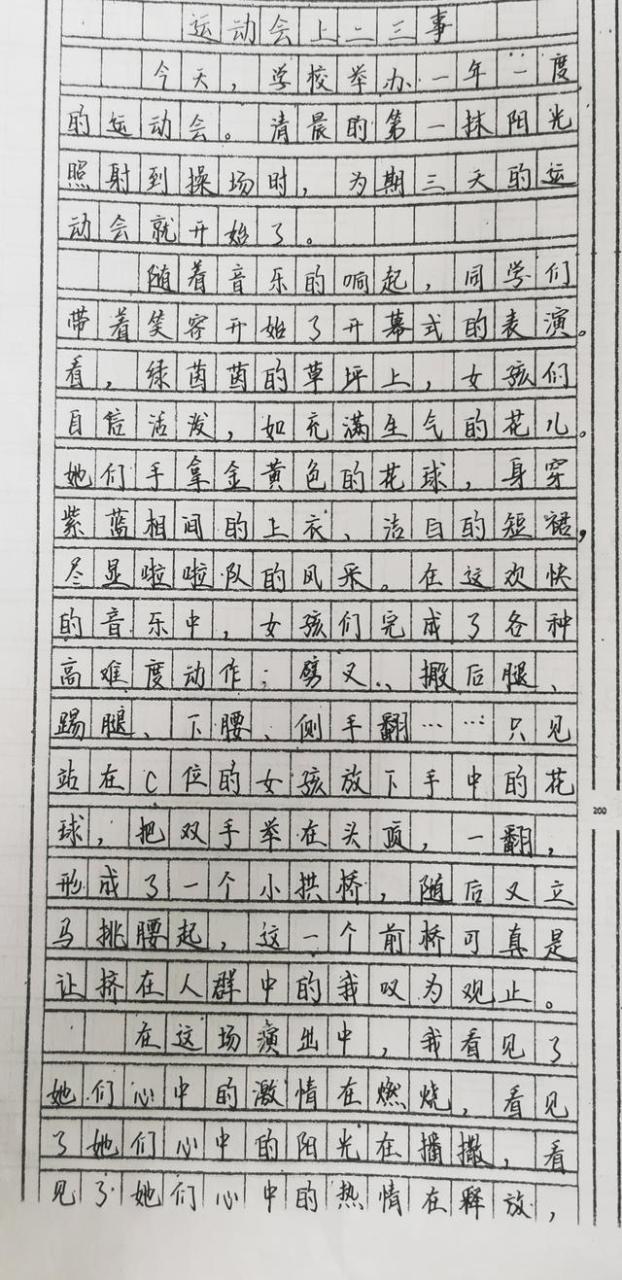 运动会上二三事
今天，学校举办一年一度
的运动会。清晨的第一抹阳光
照射到操场时，为期三天的运
动会就开始了。
随着音乐的响起，同学们
带着笑容开始了开幕式的表演。
看，绿茵茵的草坪上，女孩们
自信活泼，如充满生气的花儿。
她们手拿金黄色的花球，身穿
紫蓝相间的上衣、洁白的短裙，
尽显啦啦队的风采。在这欢快
的音乐中，女孩们完成了各种
高难度动作：劈叉、搬后腿、
踢腿、下腰、侧手翻……只见
站在C位的女孩放下手中的花
球，把双手举在头顶，一翻，
形成了一个小拱桥，随后又立
马挑腰起，这一个前桥可真是
让挤在人群中的我叹为观止。
在这场演出中，我看见了
她们心中的激情在燃烧，看见
了她们心中的阳光在播撒，看
见了她们心中的热情在释放，
200